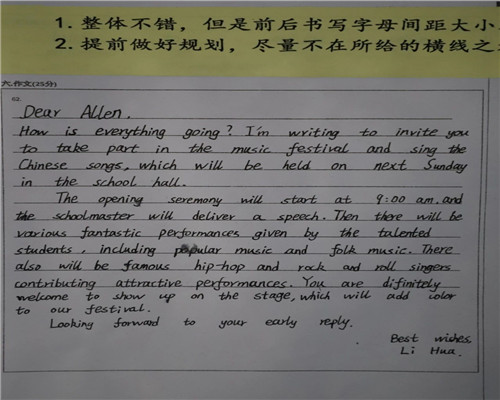 1. 整体不错，但是前后书写字母间距大小
2. 提前做好规划，尽量不在所给的横线之
六.作文(25分)
Dear Allen.
How is everything going? I'm writing to invite you
to take part in the music festival and sing the
Chinese songs, which will be held on next Sunday
in the school hall.
The opening seremony will start at 9:00 am. and
the schoolmaster will deliver a speech. Then there will be
various fantastic performances given by the talented
students, including popular music and folk music. There
also will be famous hip-hop and rock and roll singers
contributing attractive performances. You are difinitely
welcome to show up on the stage, which will add color
to our festival.
Looking forward to your early reply.
Best wishes,
Li Hua.